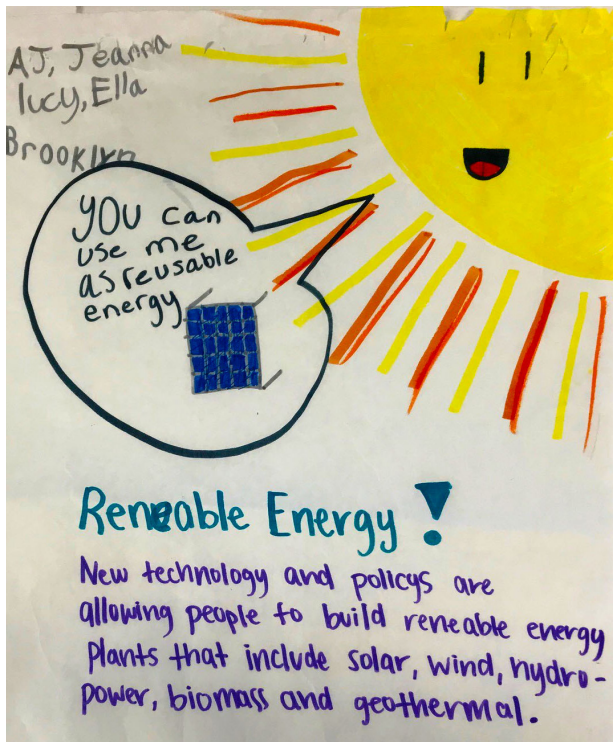 AJ, Jeanna
lucy, Ella
Brooklyn
YOU can
use me
as reusable
energy
Reneable Energy!
New technology and policys are
allowing people to build reneable energy
plants that include solar, wind, hydro-
power, biomass and geothermal.